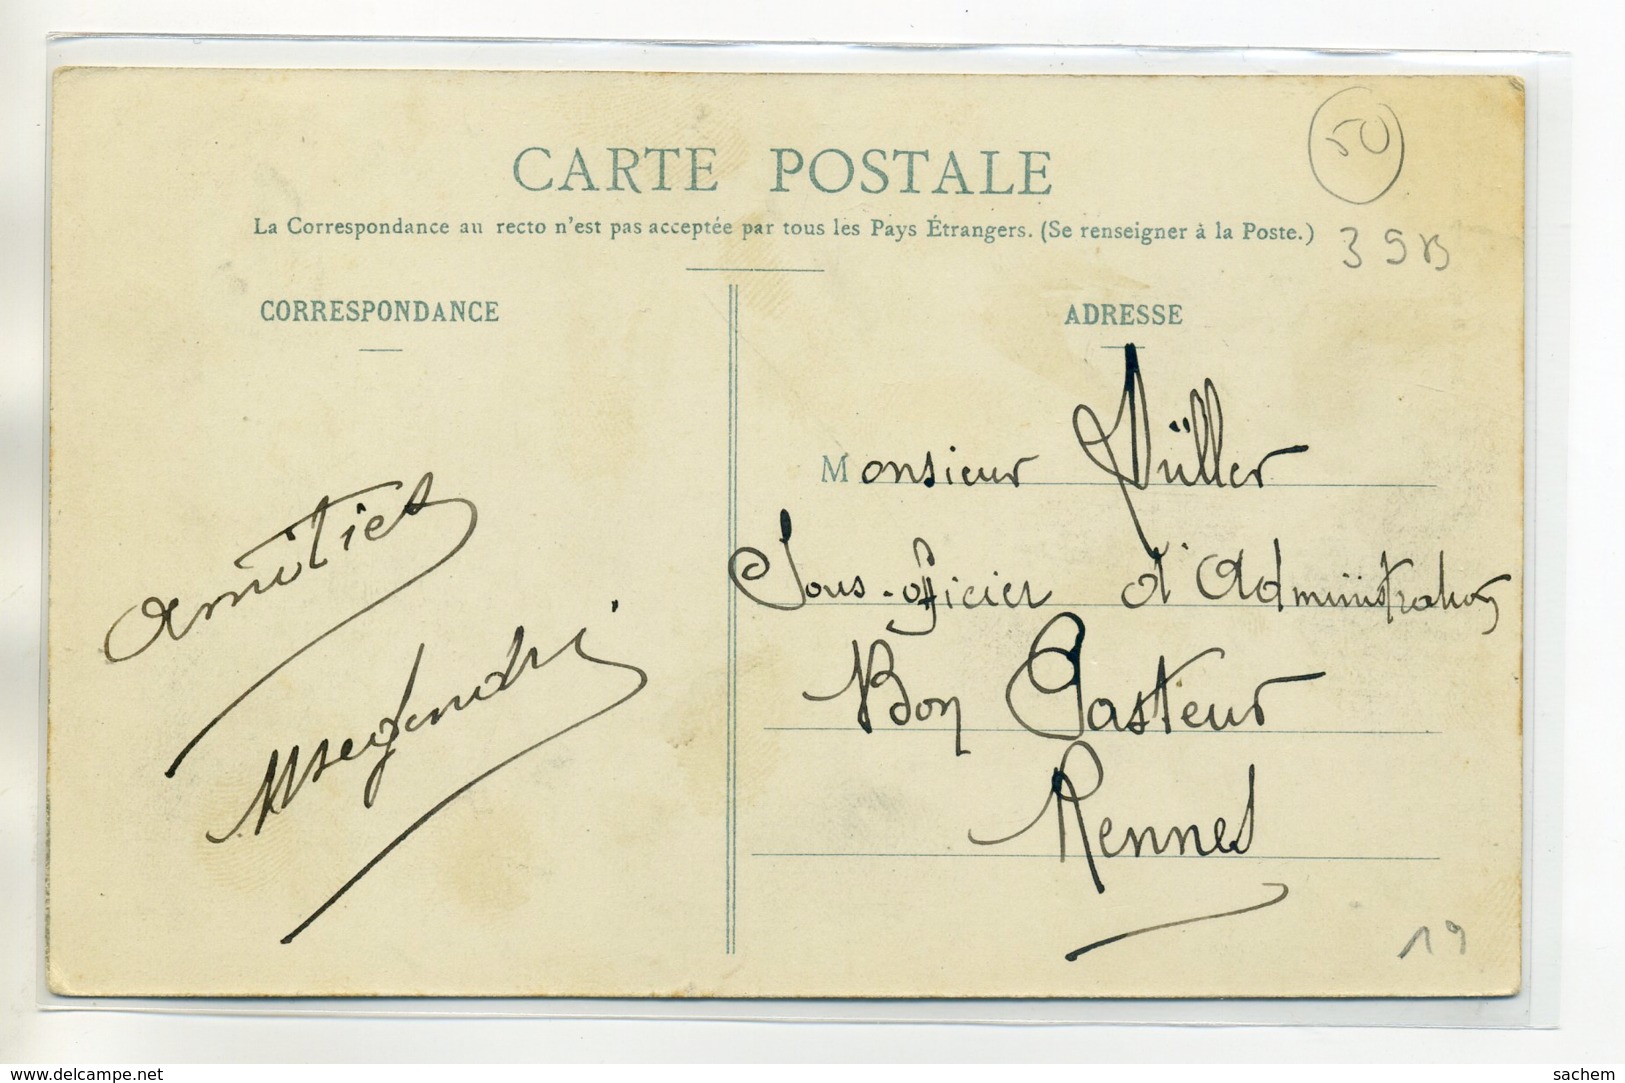 CARTE POSTALE
La Correspondance au recto n'est pas acceptée par tous les Pays Étrangers. (Se renseigner à la Poste.)
50
35B
CORRESPONDANCE
ADRESSE
Monsieur Müller
Sous-officier d'Administration
Bon Pasteur
Rennes
amitiés
19
www.delcampe.net
sachem